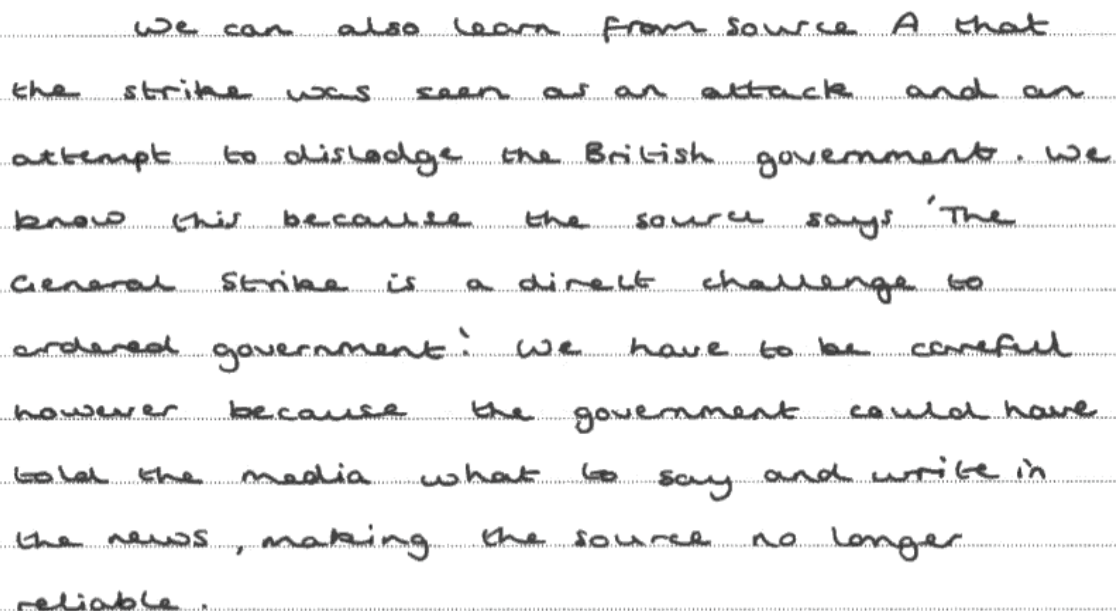 We can also learn from source A that
the strike was seen as an attack and an
attempt to dislodge the British government. We
know this because the source says 'The
General Strike is a direct challenge to
ordered government'. We have to be careful
however because the government could have
told the media what to say and write in
the news, making the source no longer
reliable.